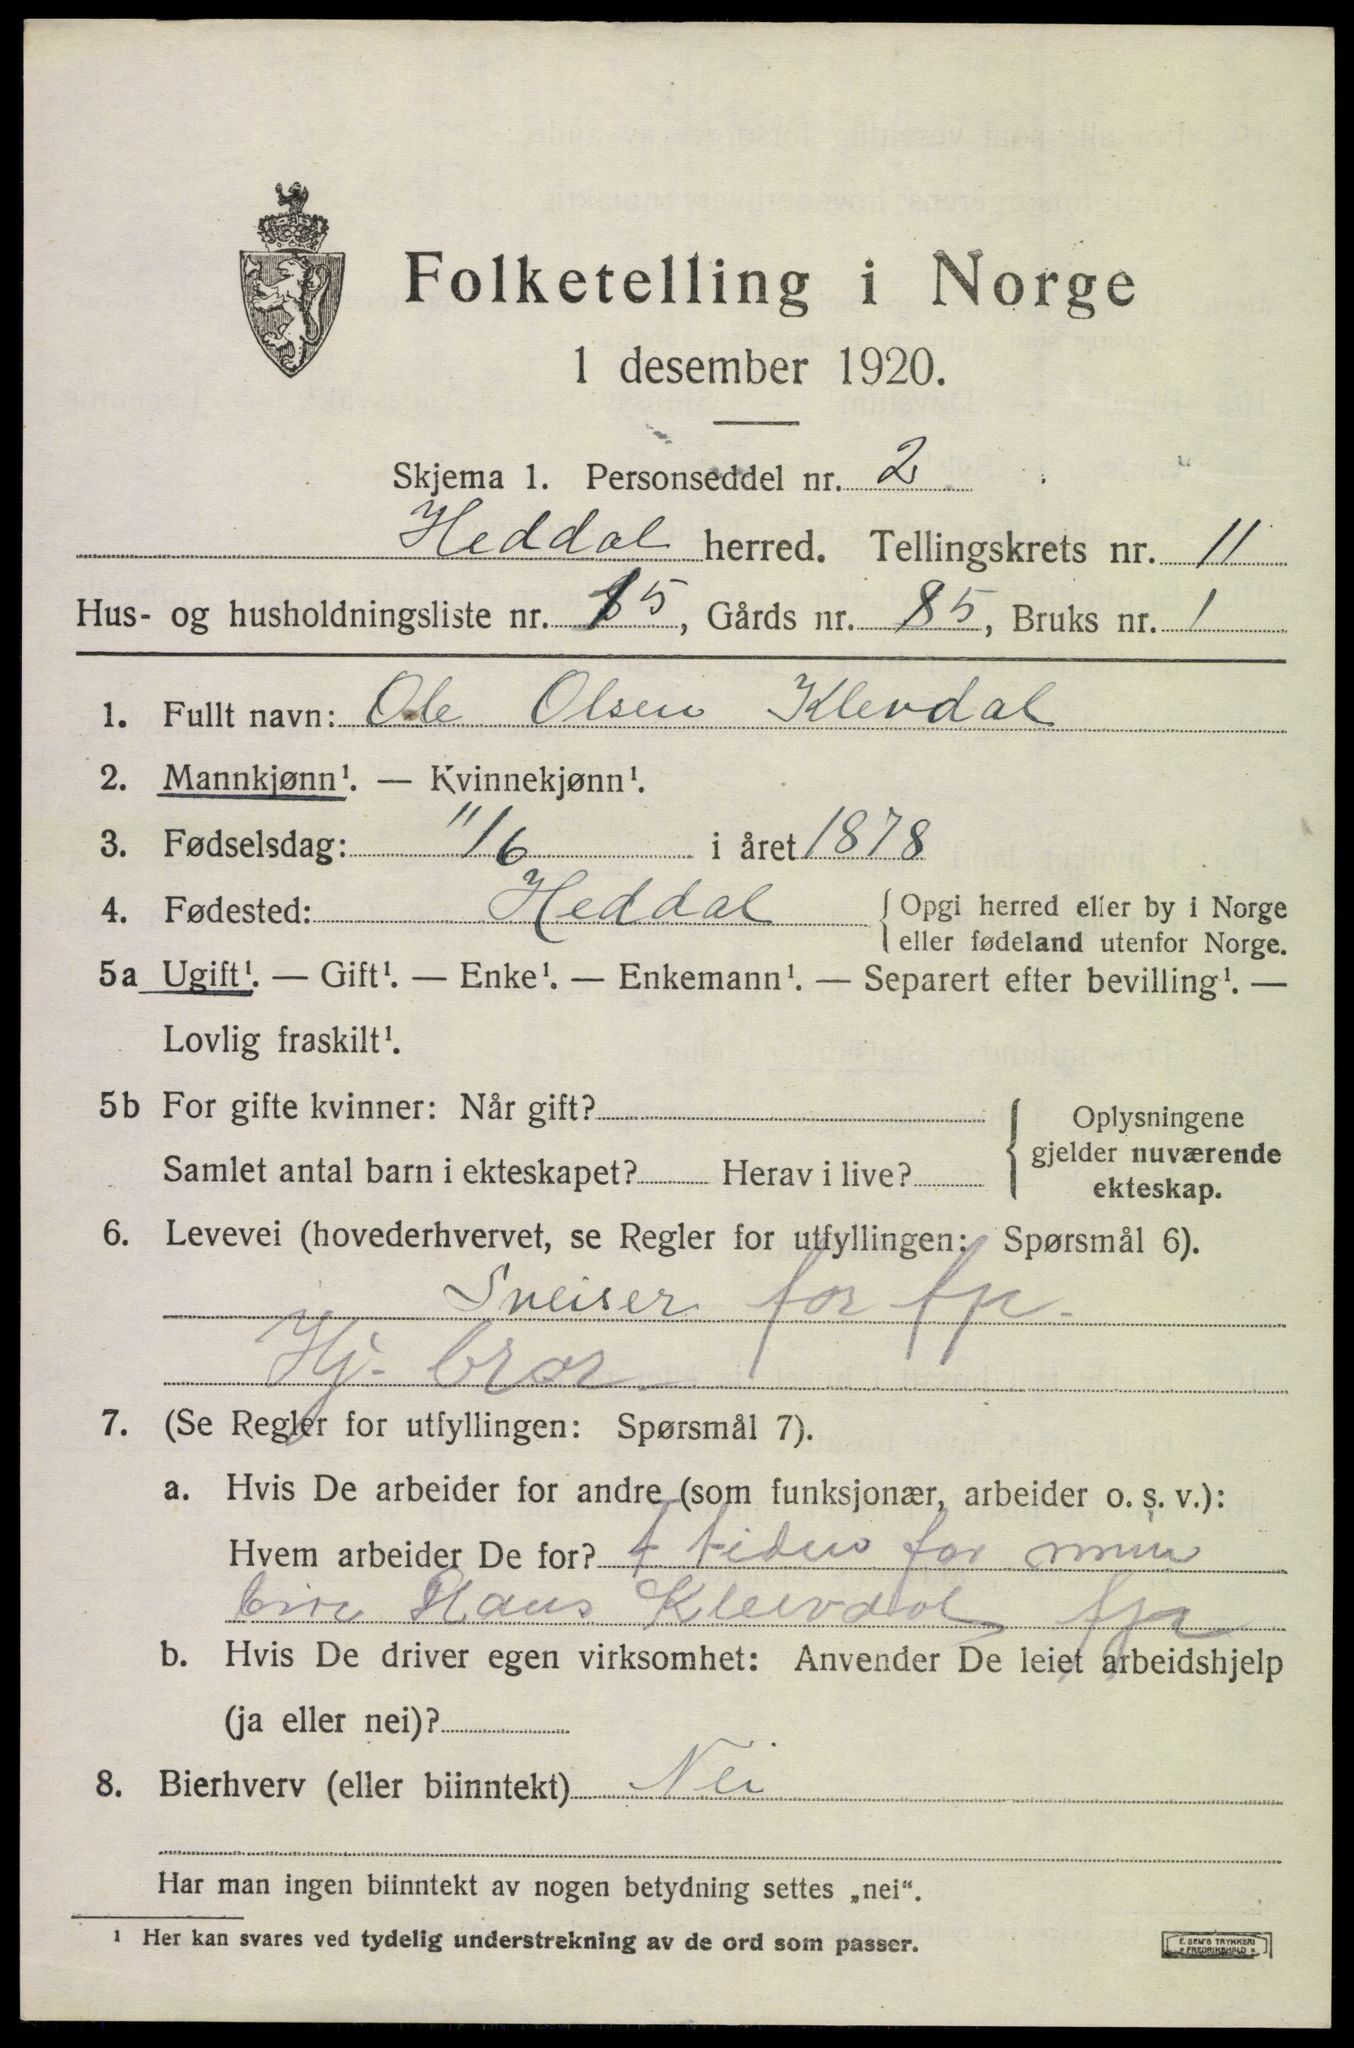 Folketelling i Norge
1 desember 1920.
Skjema 1. Personseddel nr. 2
Heddal herred. Tellingskrets nr. 11
Hus- og husholdningsliste nr. 15, Gårds nr. 85, Bruks nr. 1
1. Fullt navn: Ole Olsen Klevdal
2. Mannkjønn¹. — Kvinnekjønn¹.
3. Fødselsdag: 11/6 i året 1878
4. Fødested: Heddal { Opgi herred eller by i Norge
eller fødeland utenfor Norge.
5a Ugift¹. — Gift¹. — Enke¹. — Enkemann¹. — Separert efter bevilling¹. —
Lovlig fraskilt¹.
5b For gifte kvinner: Når gift?
Samlet antal barn i ekteskapet? Herav i live?
Oplysningene
gjelder nuværende
ekteskap.
6. Levevei (hovederhvervet, se Regler for utfyllingen: Spørsmål 6).
Sveiser for
Hj. bror
7. (Se Regler for utfyllingen: Spørsmål 7).
a. Hvis De arbeider for andre (som funksjonær, arbeider o. s. v.):
Hvem arbeider De for? for min
bror Hans Kleivdal
b. Hvis De driver egen virksomhet: Anvender De leiet arbeidshjelp
(ja eller nei)?
8. Bierhverv (eller biinntekt) Nei
Har man ingen biinntekt av nogen betydning settes „nei".
¹ Her kan svares ved tydelig understrekning av de ord som passer.
E. SEM'S TRYKKERI
FREDRIKSHALD